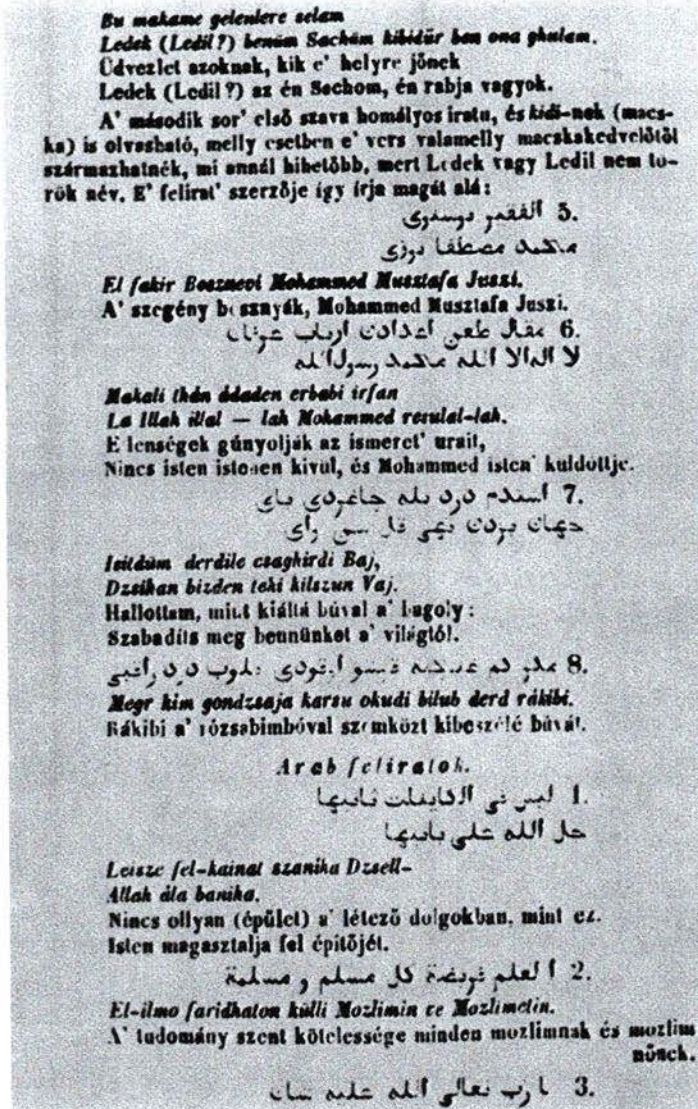 Bu makame gelenlere selam
Ledek (Ledil?) benüm Sachüm kibidür ben ona ghulam.
Üdvezlet azoknak, kik e' helyre jőnek
Ledek (Ledil?) az én Sachom, én rabja vagyok.
A' második sor' első szava homályos iratu, és kidi-nek (macs-
ka) is olvasható, melly esetben e' vers valamelly macskakedvelőtől
származhatnék, mi annál hihetőbb, mert Ledek vagy Ledil nem tö-
rök név. E' felirat' szerzője így írja magát alá:
5. الفقير بوسنوی
محمد مصطفا يوزی
El fakir Boeznevi Mohammed Musztafa Juszi.
A' szegény bosznyák, Mohammed Musztafa Juszi.
6. مقال طعن اعدادن ارباب عرفان
لا اله الا الله محمد رسول الله
Makali thán ádaden erbabi irfan
La Illah illal — lah Mohammed resulal-lah.
Ellenségek gúnyolják az ismeret' urait,
Nincs isten istenen kivul, és Mohammed isten' kuldöttje.
7. جاغردی بای
Isitdüm derdile csaghirdi Baj,
Dzsihan bizden teki kilszun Vaj.
Hallottam, mint kiáltá búval a' bagoly:
Szabadíts meg bennünket a' világtól.
8.
Megr kim gondzsaja karsu okudi bilub derd rákibi.
Rákibi a' rózsabimbóval szemközt kibeszélé búvát.
Arab feliratok.
1. ليس في الكاينات ثانيها
جل الله علي بانيها
Leisze fel-kainat szanika Dzsell-
Allah ála banika.
Nincs ollyan (épület) a' létező dolgokban, mint ez.
Isten magasztalja fel épitőjét.
2. العلم فريضة كل مسلم و مسلمة
El-ilmo faridhaton külli Mozlimin ve Mozlimetin.
A' tudomány szent kötelessége minden mozlimnak és mozlim
nőnek.
3. يا رب تعالي الله عليه